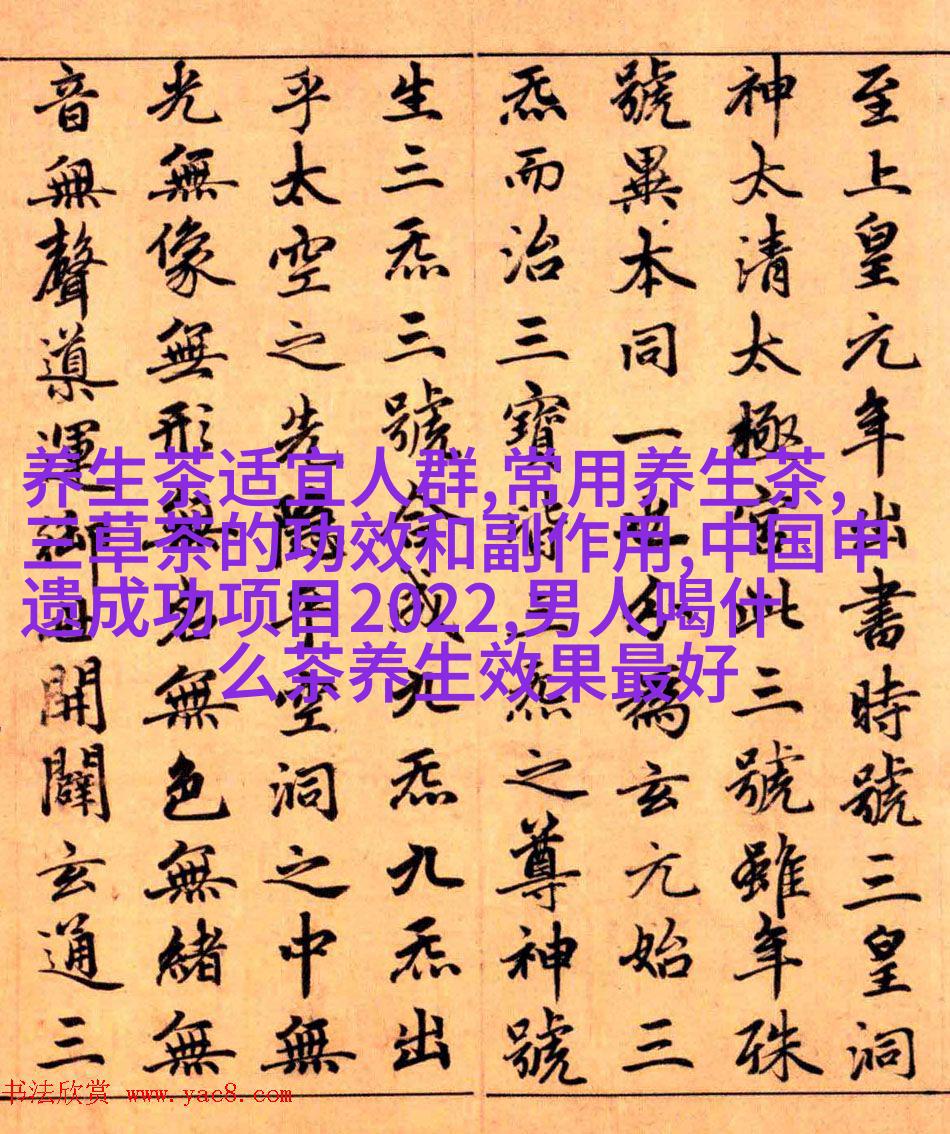 至上皇元年出書時號三皇洞
神太清太極宮此三號雖年殊
號異本同一也分為玄元始三
炁而治三寶皆三炁之尊神號
生三炁三號合成九炁九炁出
乎太空之先隱乎空洞之中無
光無像無形無名無色無緒無
音無聲導運御世開闢玄通三
养生茶适宜人群,常用养生茶,
三草茶的功效和副作用,中国申
遗成功项目2022,男人喝什
么茶养生效果最好
书法欣赏 www.yac8.com